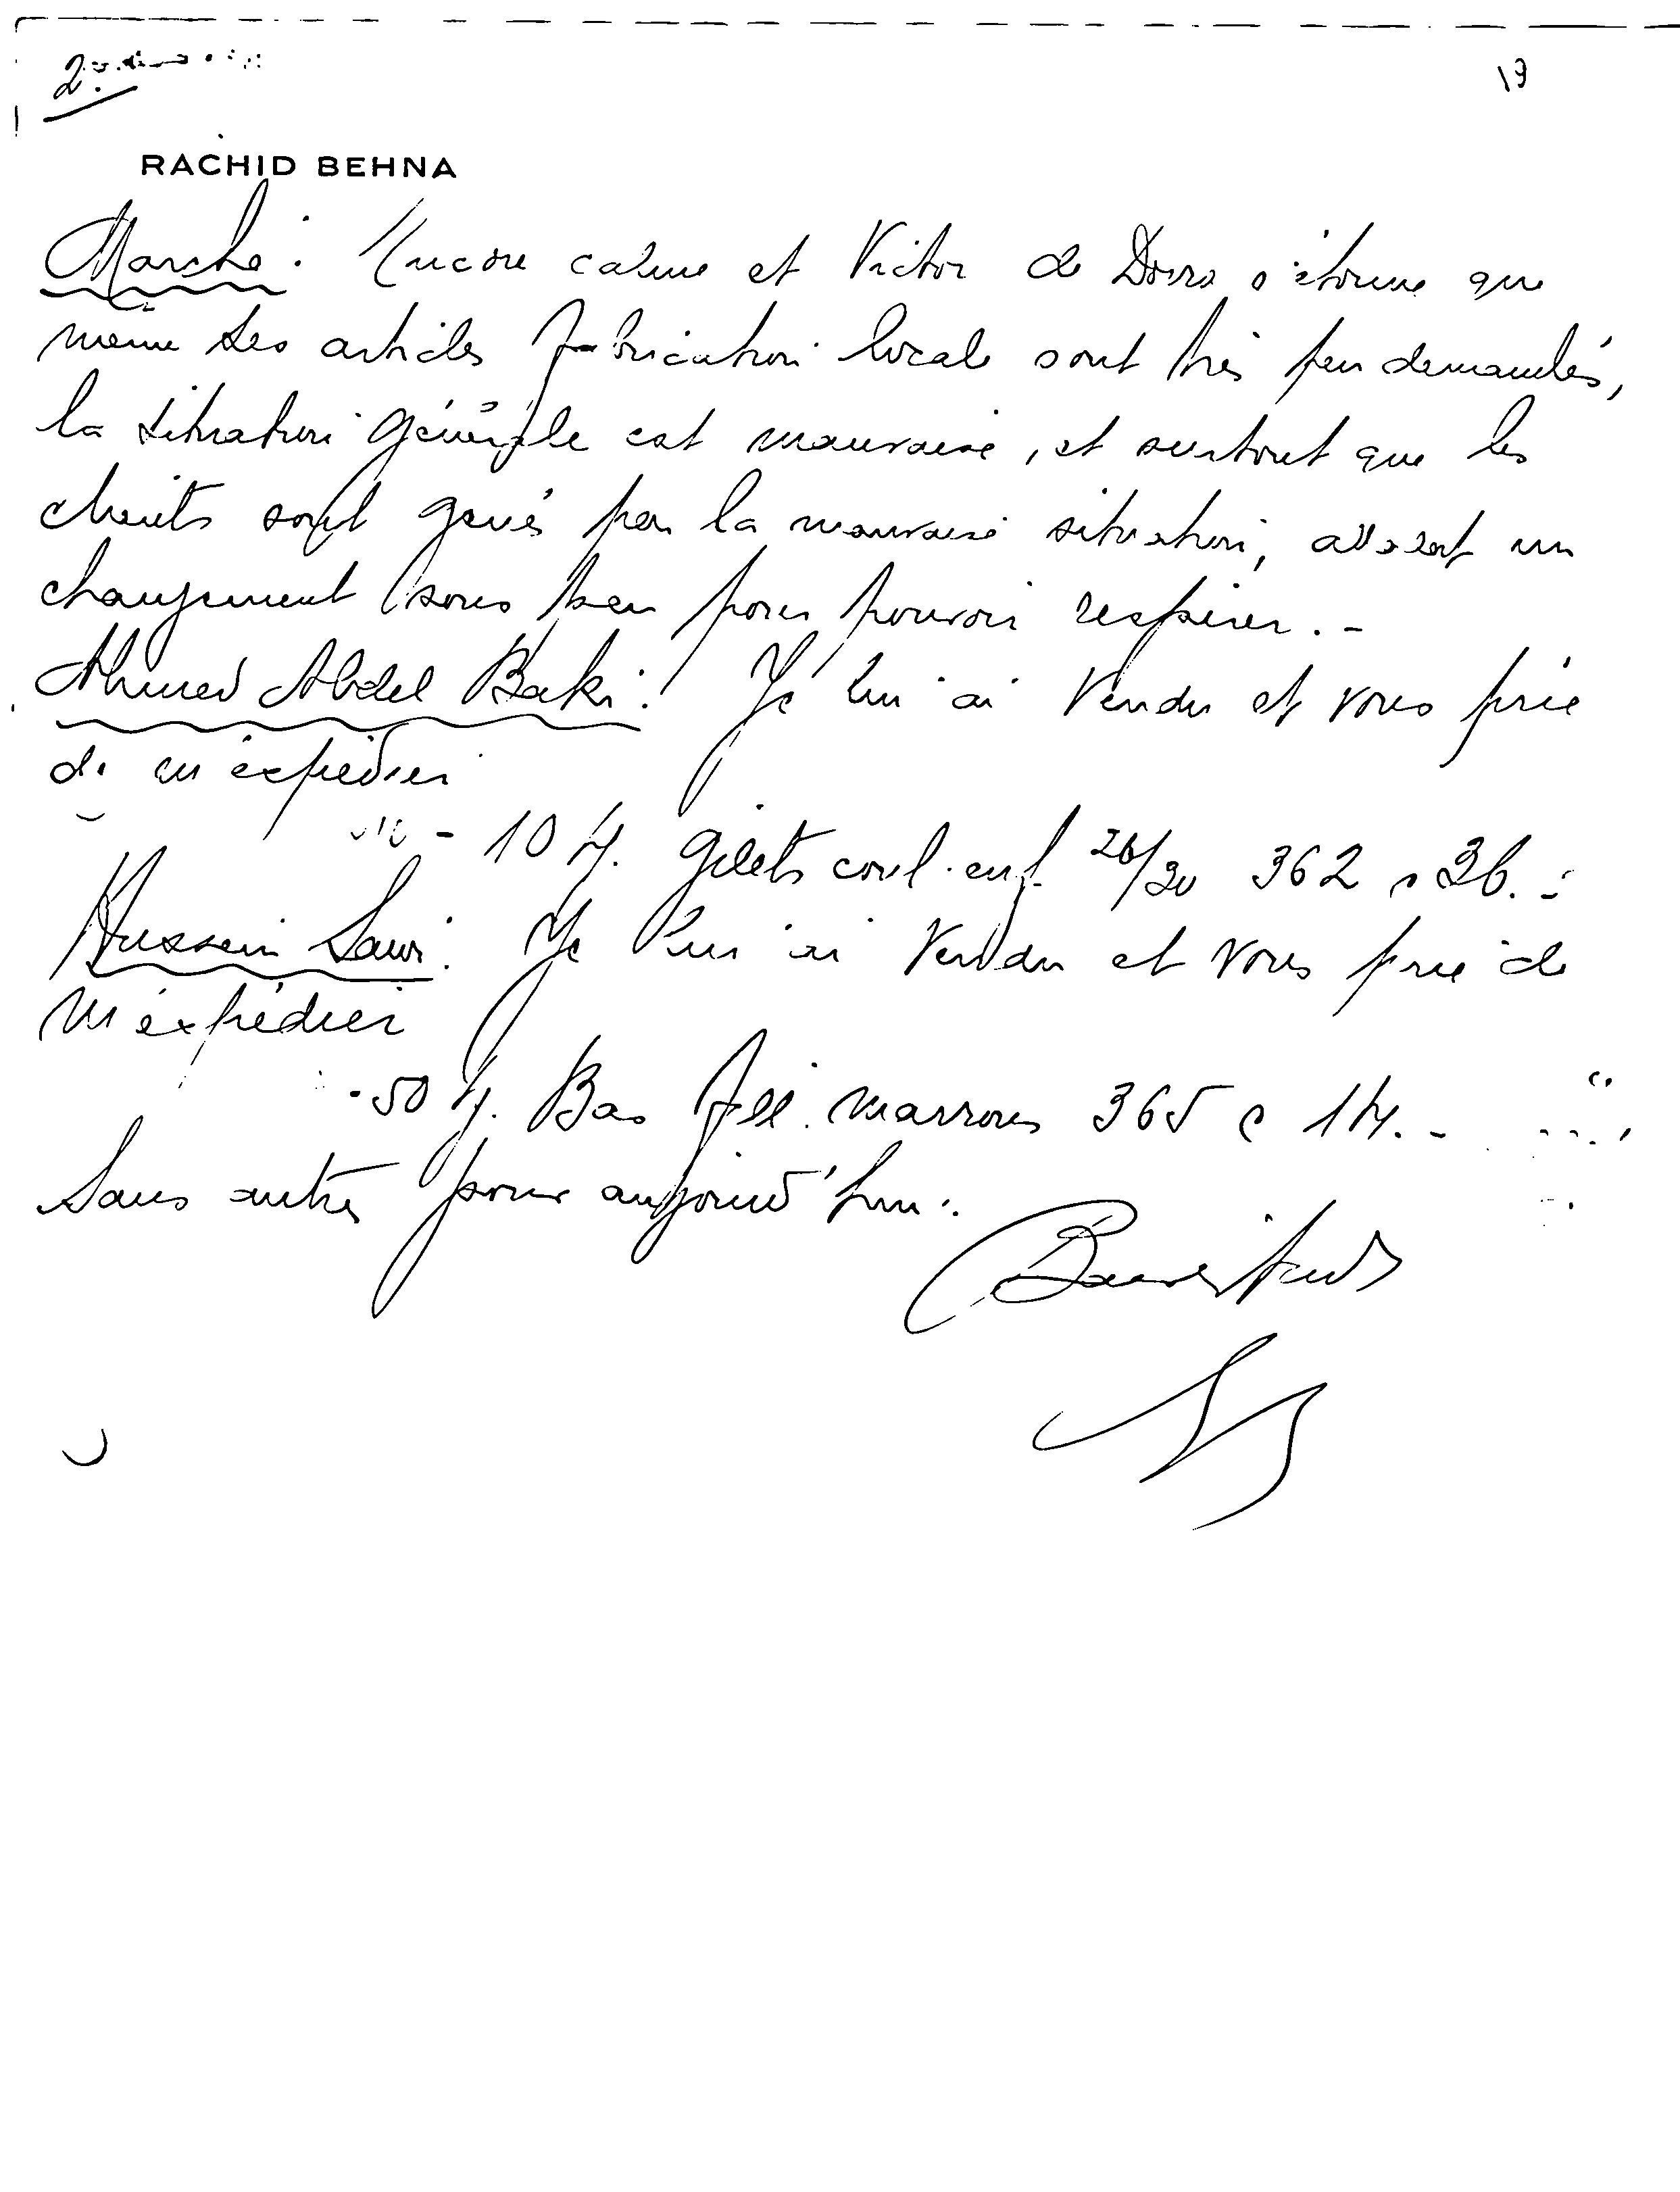 2
19
RACHID BEHNA
Marché: Encore calme et Victor de s'étonne que
même ses articles fabrication locale sont très peu demandés,
la situation générale est mauvaise, et surtout que les
clients sont génés par la mauvaise situation, un
changement sous peu pour pouvoir respirer. -
Ahmed Abdel Baki: Je lui ai vendu et vous prie
de m'éxpédier
- 10 gilets coul. enf. 26/30 362 36. -
Hussein Sawi: Je lui ai vendu et vous prie de
m'éxpédier
- 50 Bas fil. marrons 365 -
Sans autres pour aujourd'hui.